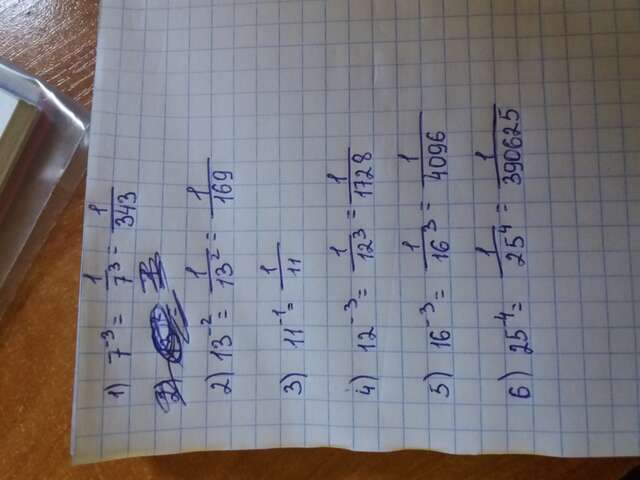 1) 7⁻³ = 1/7³ = 1/343
2) 13⁻² = 1/13² = 1/169
3) 11⁻¹ = 1/11
4) 12⁻³ = 1/12³ = 1/1728
5) 16⁻³ = 1/16³ = 1/4096
6) 25⁻⁴ = 1/25⁴ = 1/390625